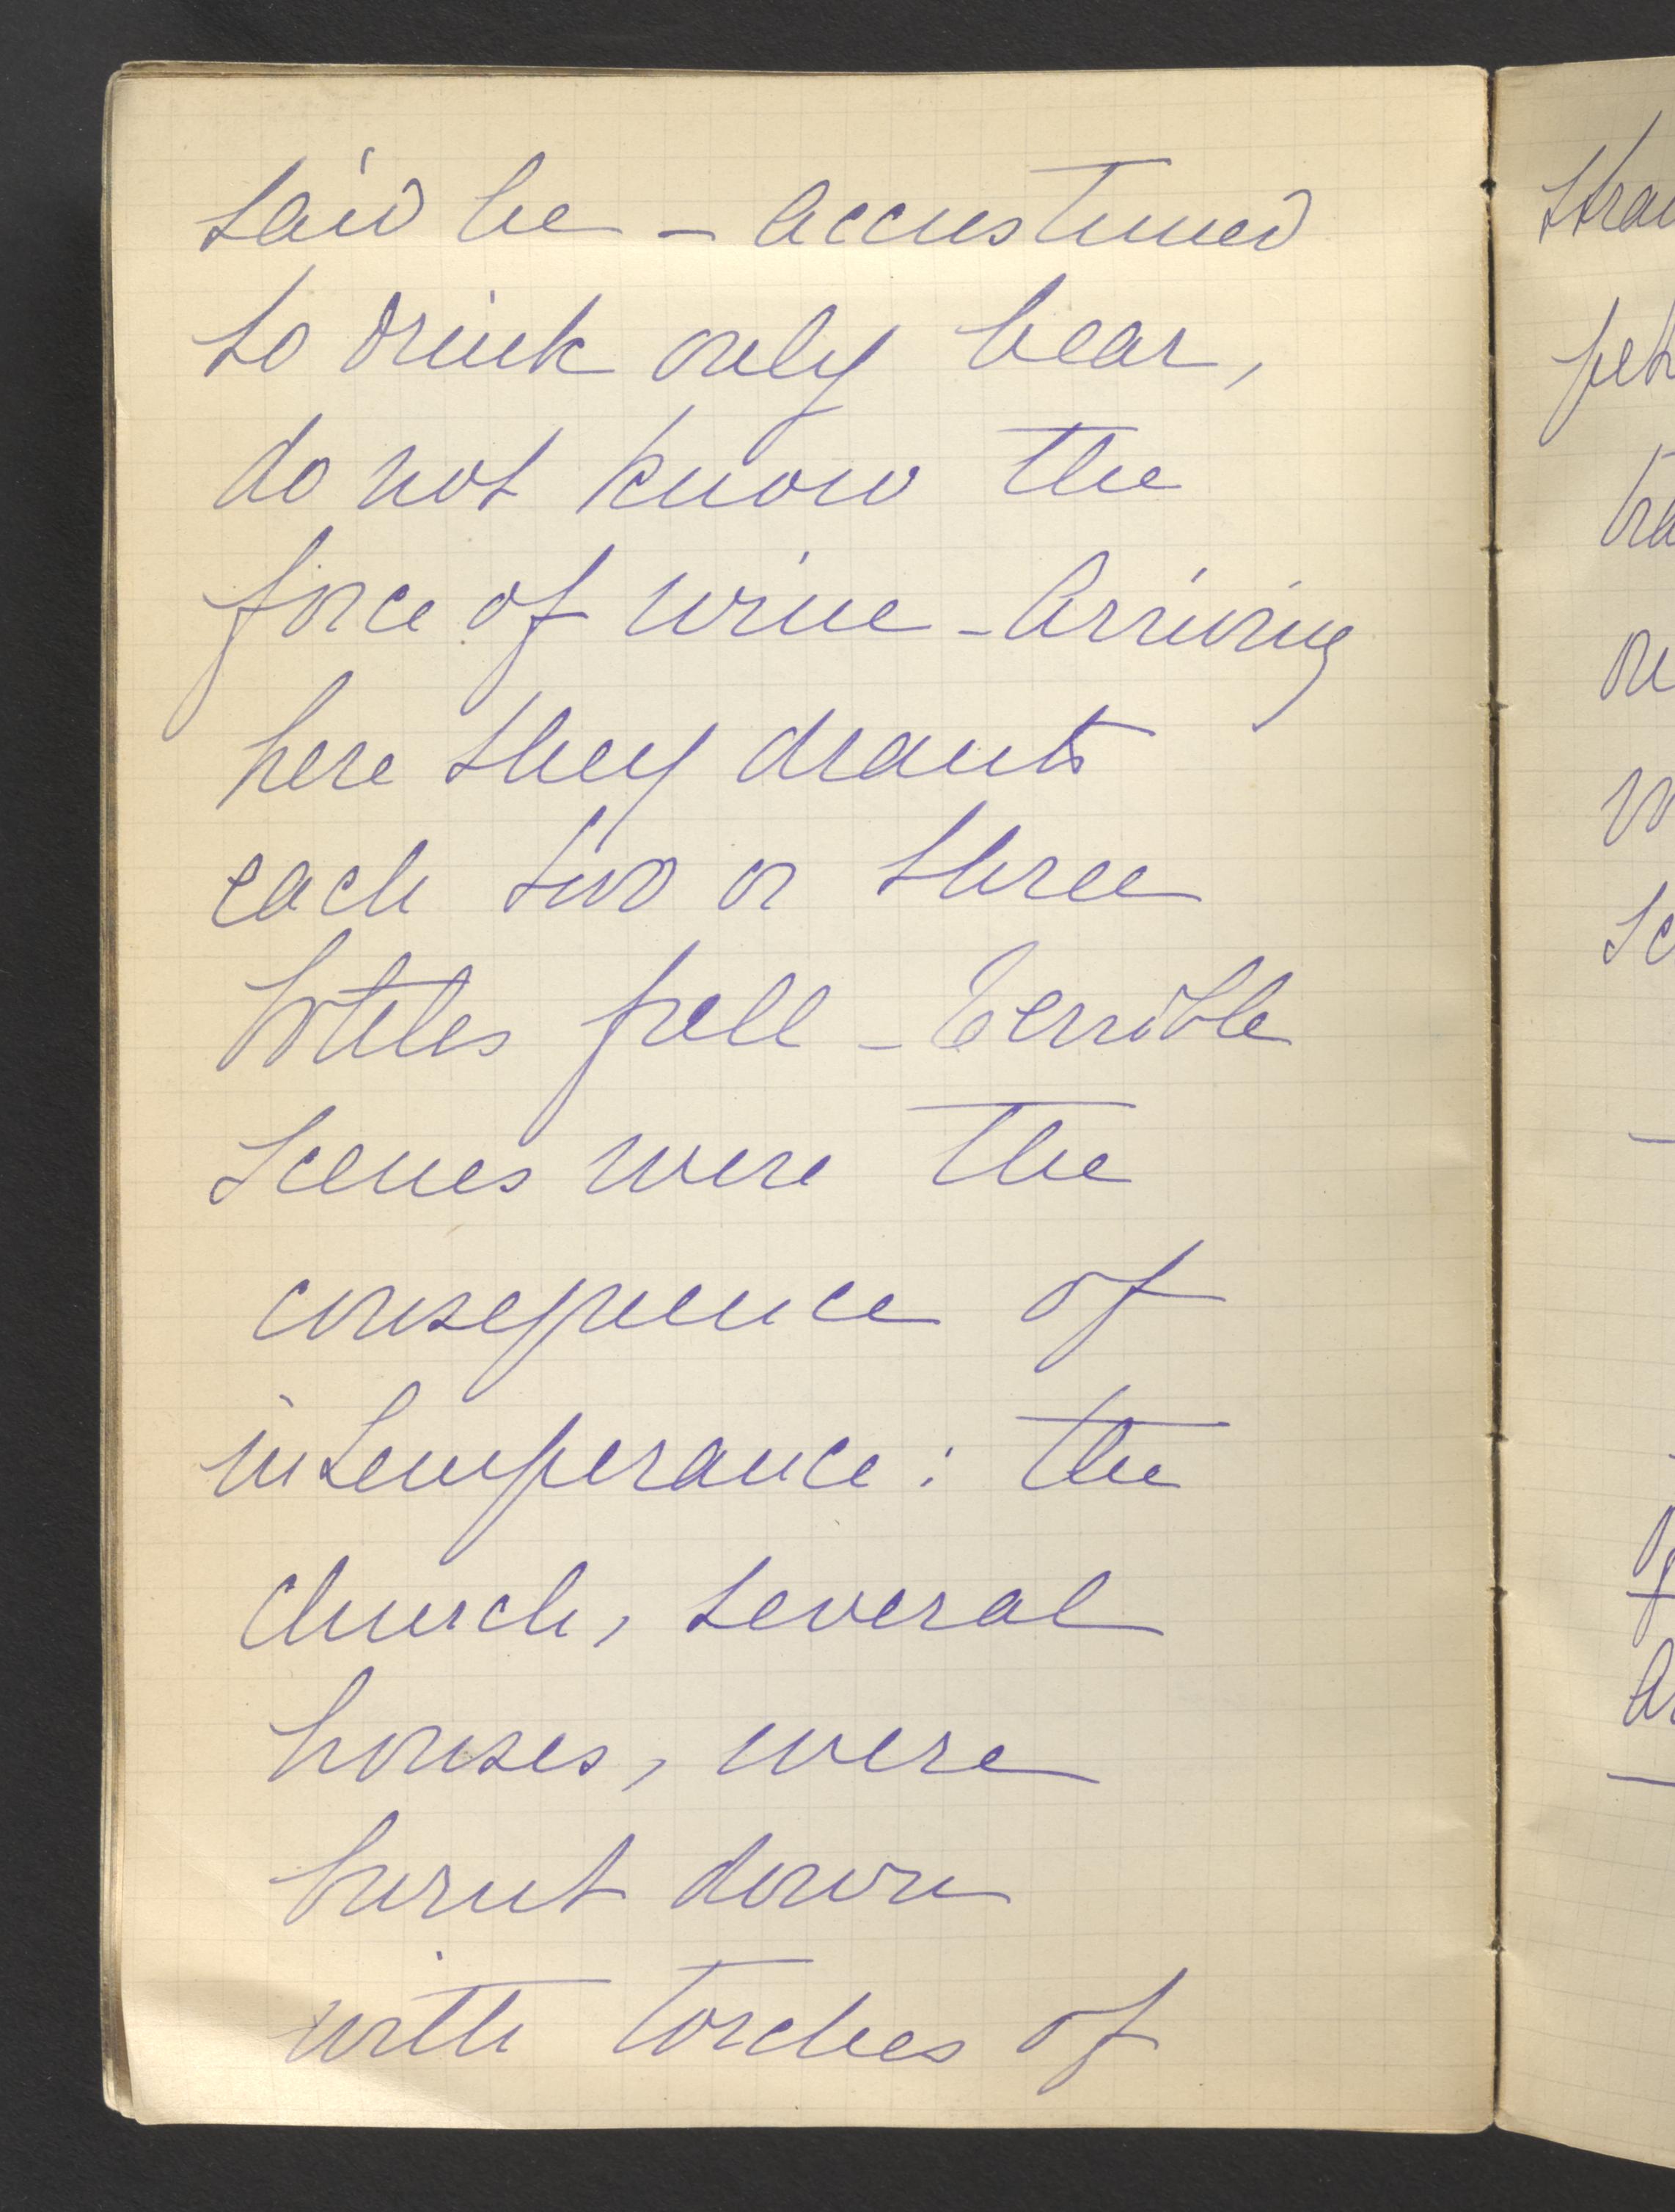 said he - accustumed
to drink only bear,
do not know the
force of wine - Arriving
here they drank
each two or three
botteles full - Terrible
scenes were the
consequence of
intemperance : the
church, several
houses, were
burnt down
with torches of